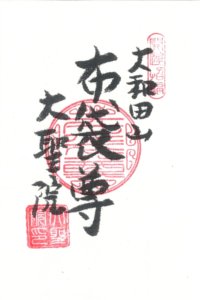 大和田山
布袋尊
大聖院